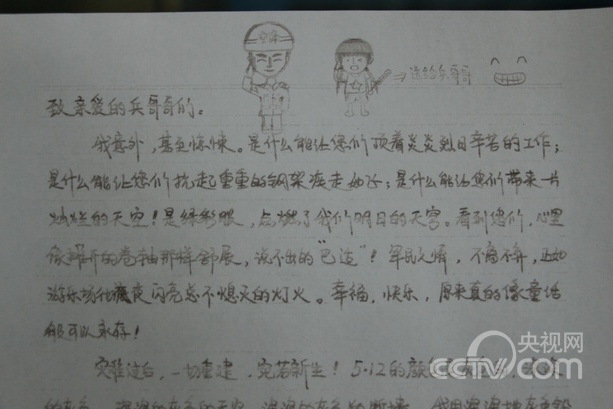 宪兵
→送给兵哥哥
致亲爱的兵哥哥的。
我意外,甚至惊悚。是什么能让您们顶着炎炎烈日辛苦的工作;
是什么能让您们扛起重重的钢架疾走如飞;是什么能让您们带来一片
灿烂的天空!是绿彩眼,点燃了我们明日的天空。看到您们,心里
像摊开的卷轴那样舒展,说不出的"巴适"!军民之情,不离不弃,正如
游乐场仲夏夜闪亮总不熄灭的灯火。幸福,快乐,原来真的像童话
般可以永存!
灾难过后,一切重建,宛若新生!5·12的颜
央视网
CCTV.com